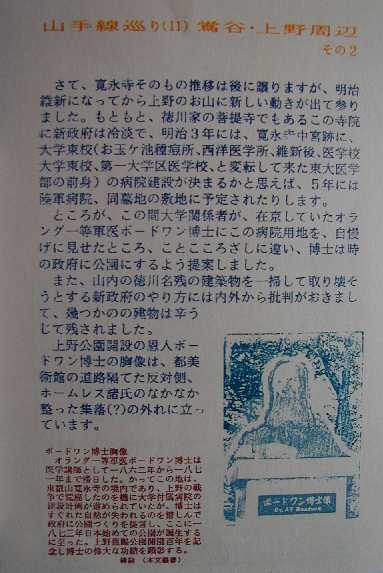 山手線巡り(11) 鶯谷・上野周辺
その2
さて、寛永寺そのもの推移は後に譲りますが、明治
維新になってから上野のお山に新しい動きが出て参り
ました。もともと、徳川家の菩提寺でもあるこの寺院
に新政府は冷淡で、明治3年には、寛永寺中宮跡に、
大学東校(お玉ケ池種痘所、西洋医学所、維新後、医学校
大学東校、第一大学区医学校、と変転して来た東大医学
部の前身)の病院建設が決まるかと思えば、5年には
陸軍病院、同墓地の敷地に予定されたりします。
ところが、この間大学関係者が、在京していたオラ
ンダ一等軍医ボードワン博士にこの病院用地を、自慢
げに見せたところ、ことこころざしに違い、博士は時
の政府に公園にするよう提案しました。
また、山内の徳川名残の建築物を一掃して取り壊そ
うとする新政府のやり方には内外から批判がおきまし
て、幾つかのの建物は辛う
じて残されました。
上野公園開設の恩人ボー
ドワン博士の胸像は、都美
術館の道路隔てた反対側、
ホームレス諸氏のなかなか
整った集落(?)の外れに立っ
ています。
ボードワン博士像
ボードワン博士胸像
オランダ一等軍医ボードワン博士は
医学講師として一八六二年から一八七
一年まで滞日した。かってこの地は、
東叡山寛永寺の境内であり、上野の戦
争で荒廃したのを機に大学付属病院の
建設計画が進められていたが、博士は
すぐれた自然が失われるのを惜しんで
政府に公園づくりを提言し、ここに一
八七三年日本始めての公園が誕生する
に至った。上野恩賜公園開園百年を記
念し博士の偉大な功績を顕彰する。